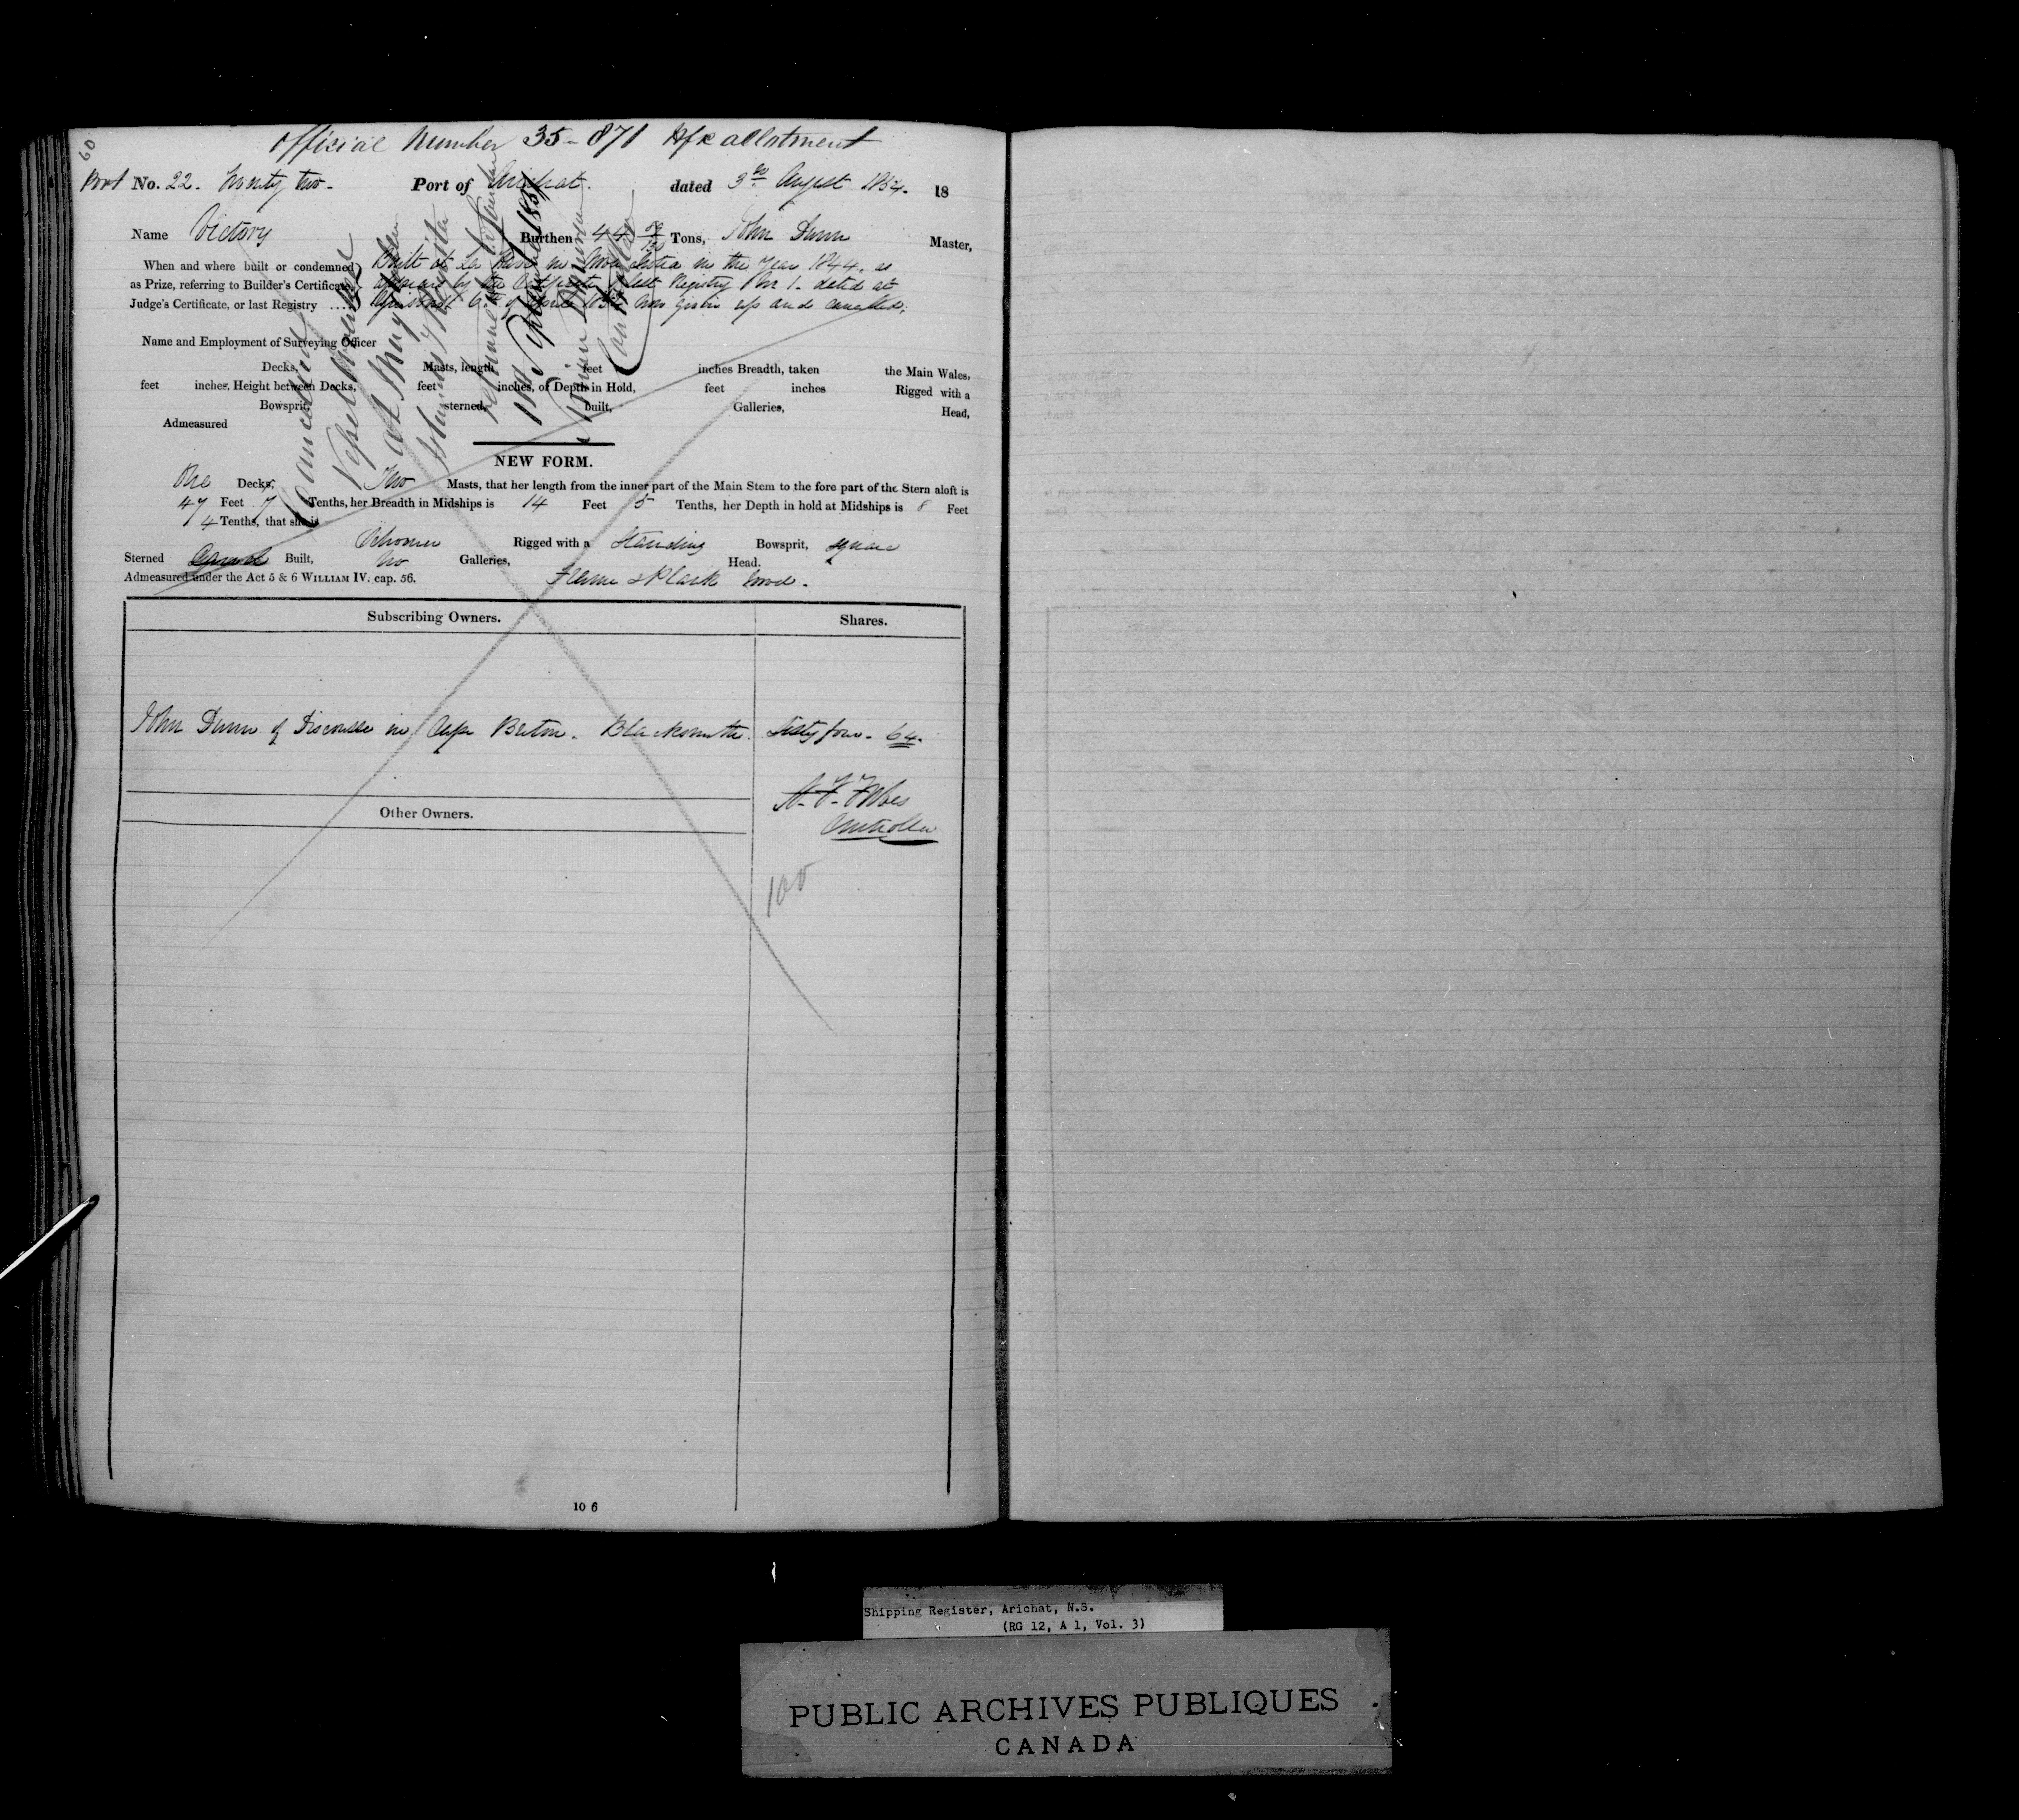 60
Official Number 35-871 Hfx allotment
Port No. 22. Twenty two. Port of Arichat. dated 3rd August 1854. 18
Name Victory Burthen 44 Tons, John Dunn Master,
When and where built or condemned Built at in Nova Scotia in the Year 1844. as
as Prize, referring to Builder's Certificate, appears by the Certificate of last Registry No 1. dated at
Judge's Certificate, or last Registry .... 6th of April now given up and cancelled.
Name and Employment of Surveying Officer
Decks, Masts, length feet inches Breadth, taken the Main Wales,
feet inches, Height between Decks, feet inches, of Depth in Hold, feet inches Rigged with a
Bowsprit, sterned, built, Galleries, Head,
Admeasured
Cancelled
Vessel
at
Register
1st September 185
NEW FORM.
One Decks, Two Masts, that her length from the inner part of the Main Stem to the fore part of the Stern aloft is
47 Feet 7 Tenths, her Breadth in Midships is 14 Feet 5 Tenths, her Depth in hold at Midships is 8 Feet
4 Tenths, that she is
Schooner Rigged with a Standing Bowsprit, square
Sterned Carvel Built, No Galleries, Head.
Admeasured under the Act 5 & 6 WILLIAM IV. cap. 56. Frame & Plank wood.
Subscribing Owners. Shares.
John Dunn of Discousse in Cape Breton. Blacksmith. Sixty four. 64.
Controller
Other Owners.
100
10 6
Shipping Register, Arichat, N.S.
(RG 12, A 1, Vol. 3)
PUBLIC ARCHIVES PUBLIQUES
CANADA